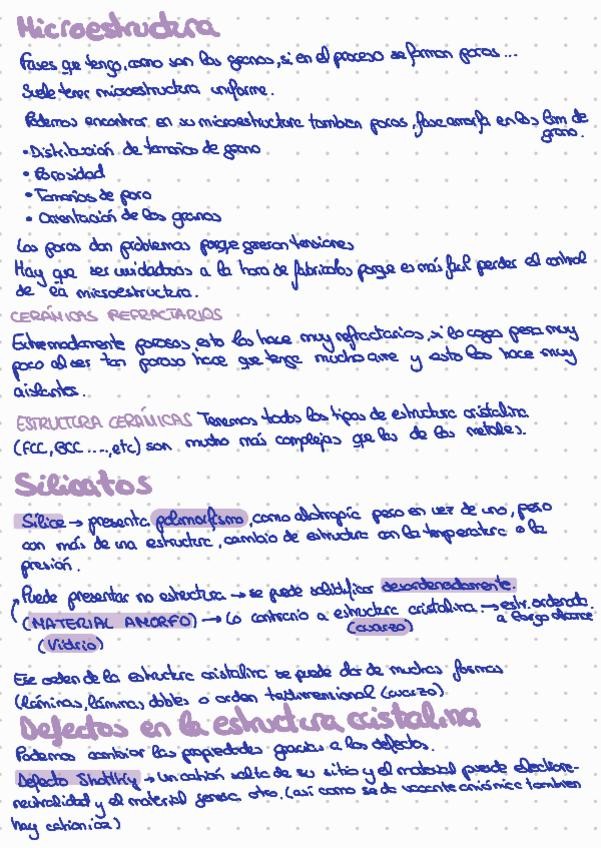 Microestructura
Fases que tengo, como son los granos, si en el proceso se forman poros ...
Suele tener microestructura uniforme.
Podemos encontrar en su microestructura tambien poros, fase amorfa en los lim de
grano.
• Distribución de tamaños de grano
• Porosidad
• Tamaños de poro
• Orientación de los granos
Los poros dan problemas porque generan tensiones
Hay que ser cuidadosos a la hora de fabricarlos porque es más fácil perder el control
de la microestructura.
CERÁMICAS REFRACTARIOS
Extremadamente porosos, esto los hace muy refractarios, si lo coges pesa muy
poco al ser tan poroso hace que tenga mucho aire y esto los hace muy
aislantes.
ESTRUCTURA CERÁMICAS Tenemos todos los tipos de estructura cristalina
(FCC, BCC ...., etc) son mucho más complejas que las de los metales.
Silicatos
Sílice → presenta polimorfismo, como alotropía pero en vez de uno, pero
con más de una estructura, cambio de estructura con la temperatura o la
presión.
Puede presentar no estructura → se puede solidificar desordenadamente.
(MATERIAL AMORFO) → Lo contrario a estructura cristalina → estr. ordenada
a largo alcance
(cuarzo)
(Vidrio)
Ese orden de la estructura cristalina se puede dar de muchas formas
(láminas, láminas dobles o orden tridimensional (cuarzo)
Defectos en la estructura cristalina
Podemos cambiar las propiedades gracias a los defectos.
Defecto Shottky → Un catión salta de su sitio y el material pierde electro-
neutralidad y el material genera otro. (así como se da vacante aniónica tambien
hay catiónica)